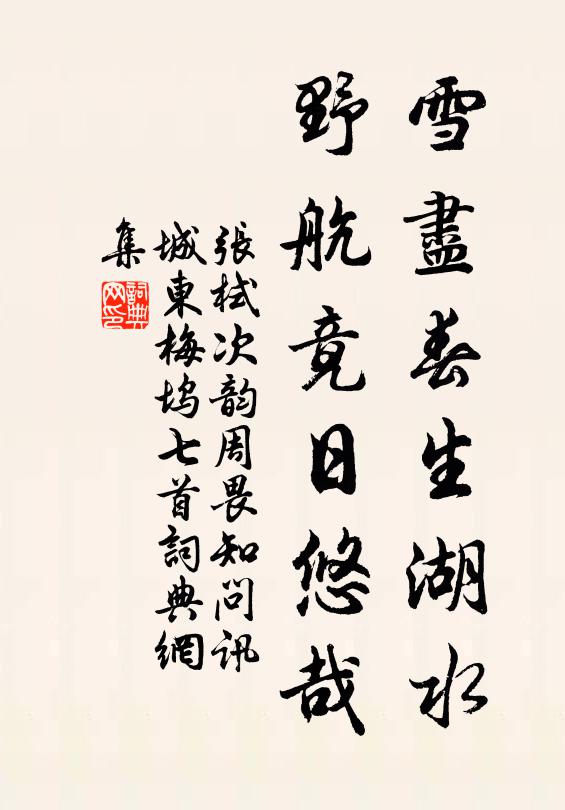 雪盡春生湖水
野航竟日悠哉
張栻次韵周畏知問訊
城東梅坞七首詞典網
集
詞典
网印